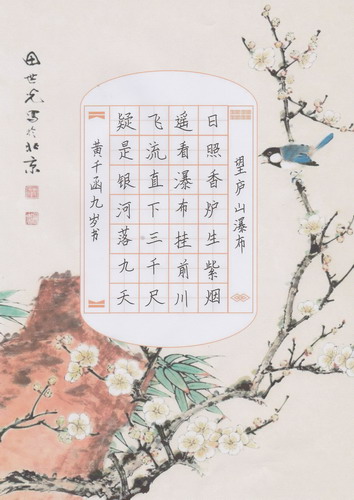 望庐山瀑布
日照香炉生紫烟
遥看瀑布挂前川
飞流直下三千尺
疑是银河落九天
黄千函九岁书
田世光写于北京